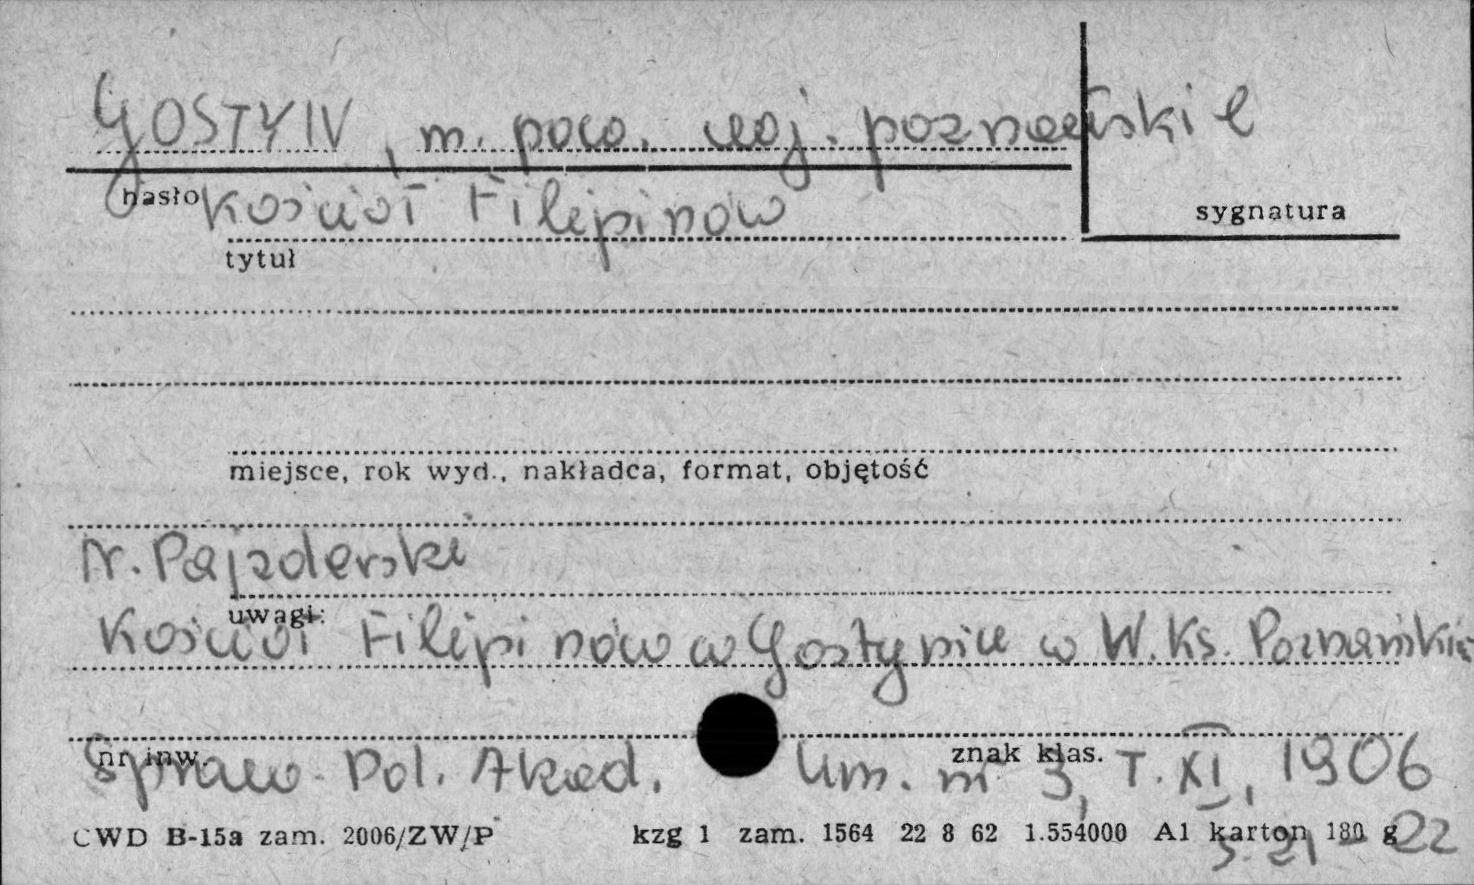 GOSTYŃ, m. pow. woj. poznańskie
hasło
Kościół Filipinów
sygnatura
tytuł
miejsce, rok wyd., nakładca, format, objętość
N. Pajzderski
uwagi:
Kościół Filipinów w Gostyniu w W. Ks. Poznańskim
nr inw.
znak klas.
Spraw. Pol. Akad. Um. nr 3, T. XI, 1906
CWD B-15a zam. 2006/ZW/P kzg 1 zam. 1564 22 8 62 1.554000 A1 karton 180 g
s. 21-22